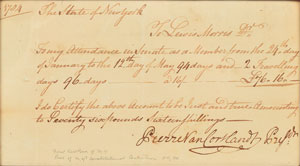 1784
The State of New York
To Lewis Morris Dr.
To my Attendance in Senate as a Member from the 24th day
of January to the 12th day of May 94 days and 2 Travelling
days 96 days a 16/. £76.16
I do Certify the above Account to be Just and true Amounting
to Seventy six Pounds Sixteen Shillings
Pierre Van Cortlandt Presdt.